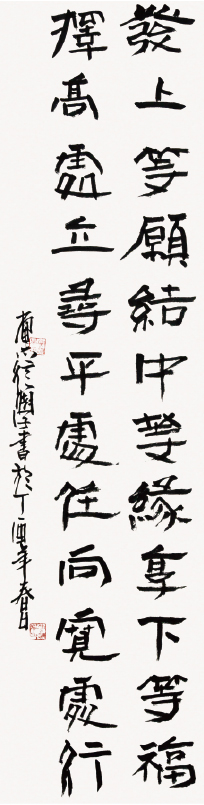 發上等願結中等緣享下等福
擇高處立尋平處住向寬處行
書於丁酉年春日